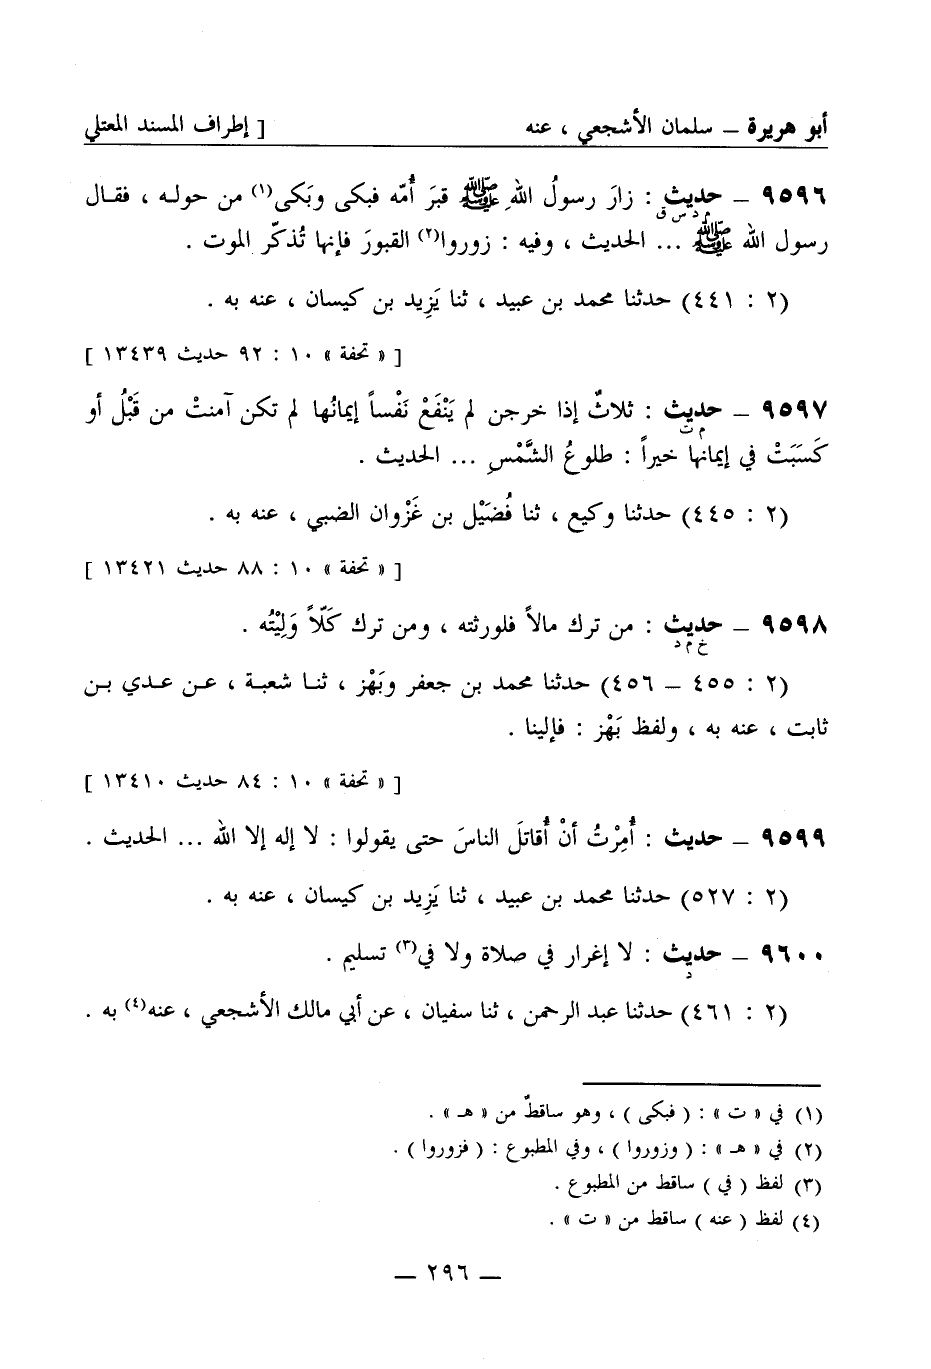 أبو هريرة – سلمان الأشجعي ، عنه [ إطراف المسند المعتلي
٩٥٩٦ – حديث : زارَ رسولُ اللهِ ﷺ قبرَ أُمّه فبكى وبَكى(١) من حوله ، فقال
م د س ق
رسول الله ﷺ ... الحديث ، وفيه : زوروا(٢) القبورَ فإنها تُذكّر الموت .
(٢ : ٤٤١) حدثنا محمد بن عبيد ، ثنا يَزِيد بن كيسان ، عنه به .
[ « تحفة » ١٠ : ٩٢ حديث ١٣٤٣٩ ]
٩٥٩٧ – حديث : ثلاثٌ إذا خرجن لم يَنْفَعْ نَفْساً إيمانُها لم تكن آمنتْ من قَبْلُ أو
م ت
كَسَبَتْ في إيمانها خيراً : طلوعُ الشَّمْسِ ... الحديث .
(٢ : ٤٤٥) حدثنا وكيع ، ثنا فُضَيْل بن غَزْوان الضبي ، عنه به .
[ « تحفة » ١٠ : ٨٨ حديث ١٣٤٢١ ]
٩٥٩٨ – حديث : من ترك مالاً فلورثته ، ومن ترك كَلّاً وَلِيْتُه .
خ م د
(٢ : ٤٥٥ – ٤٥٦) حدثنا محمد بن جعفر وبَهْز ، ثنا شعبة ، عن عدي بن
ثابت ، عنه به ، ولفظ بَهْز : فإلينا .
[ « تحفة » ١٠ : ٨٤ حديث ١٣٤١٠ ]
٩٥٩٩ – حديث : أُمِرْتُ أنْ أُقاتلَ الناسَ حتى يقولوا : لا إله إلا الله ... الحديث .
(٢ : ٥٢٧) حدثنا محمد بن عبيد ، ثنا يَزِيد بن كيسان ، عنه به .
٩٦٠٠ – حديث : لا إغرار في صلاة ولا في(٣) تسليم .
د
(٢ : ٤٦١) حدثنا عبد الرحمن ، ثنا سفيان ، عن أبي مالك الأشجعي ، عنه(٤) به .
(١) في « ت » : ( فبكى ) ، وهو ساقطٌ من « هـ » .
(٢) في « هـ » : ( وزوروا ) ، وفي المطبوع : ( فزوروا ) .
(٣) لفظ ( في ) ساقط من المطبوع .
(٤) لفظ ( عنه ) ساقط من « ت » .
– ٢٩٦ –